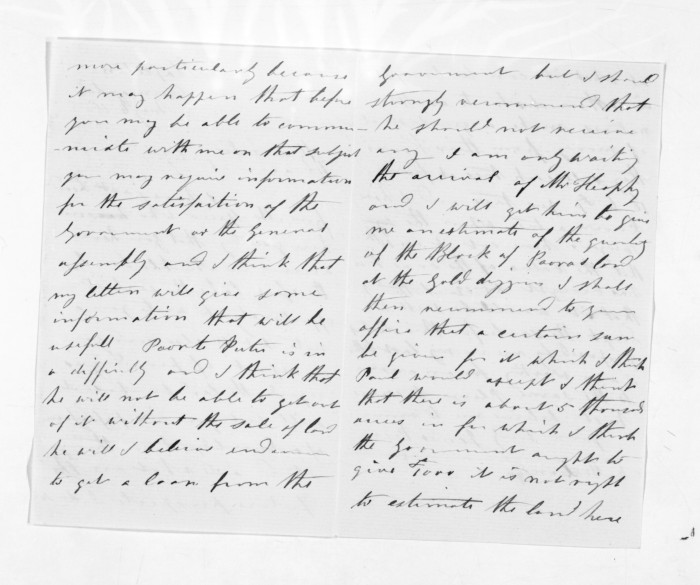 more particularly because
it may happen that before
you may be able to commu-
-nicate with me on that subject
you may require information
for the satisfaction of the
Government or the General
assembly and I think that
my letter will give some
information that will be
usefull Paora te Putu is in
a difficulty and I think that
he will not be able to get out
of it without the sale of land
he will I believe endeavour
to get a loan from the
Government but I should
strongly recommend that
he should not receive
any I am only waiting
the arrival of Mr Heaphy
and I will get him to give
me an estimate of the quality
of the Block of Paoras land
at the Gold diggins I shall
then recommend to your
office that a certain sum
be given for it which I think
Paul would accept I think
that there is about 5 thousand
acres in for which I think
the Government ought to
give it is not right
to estimate the land here